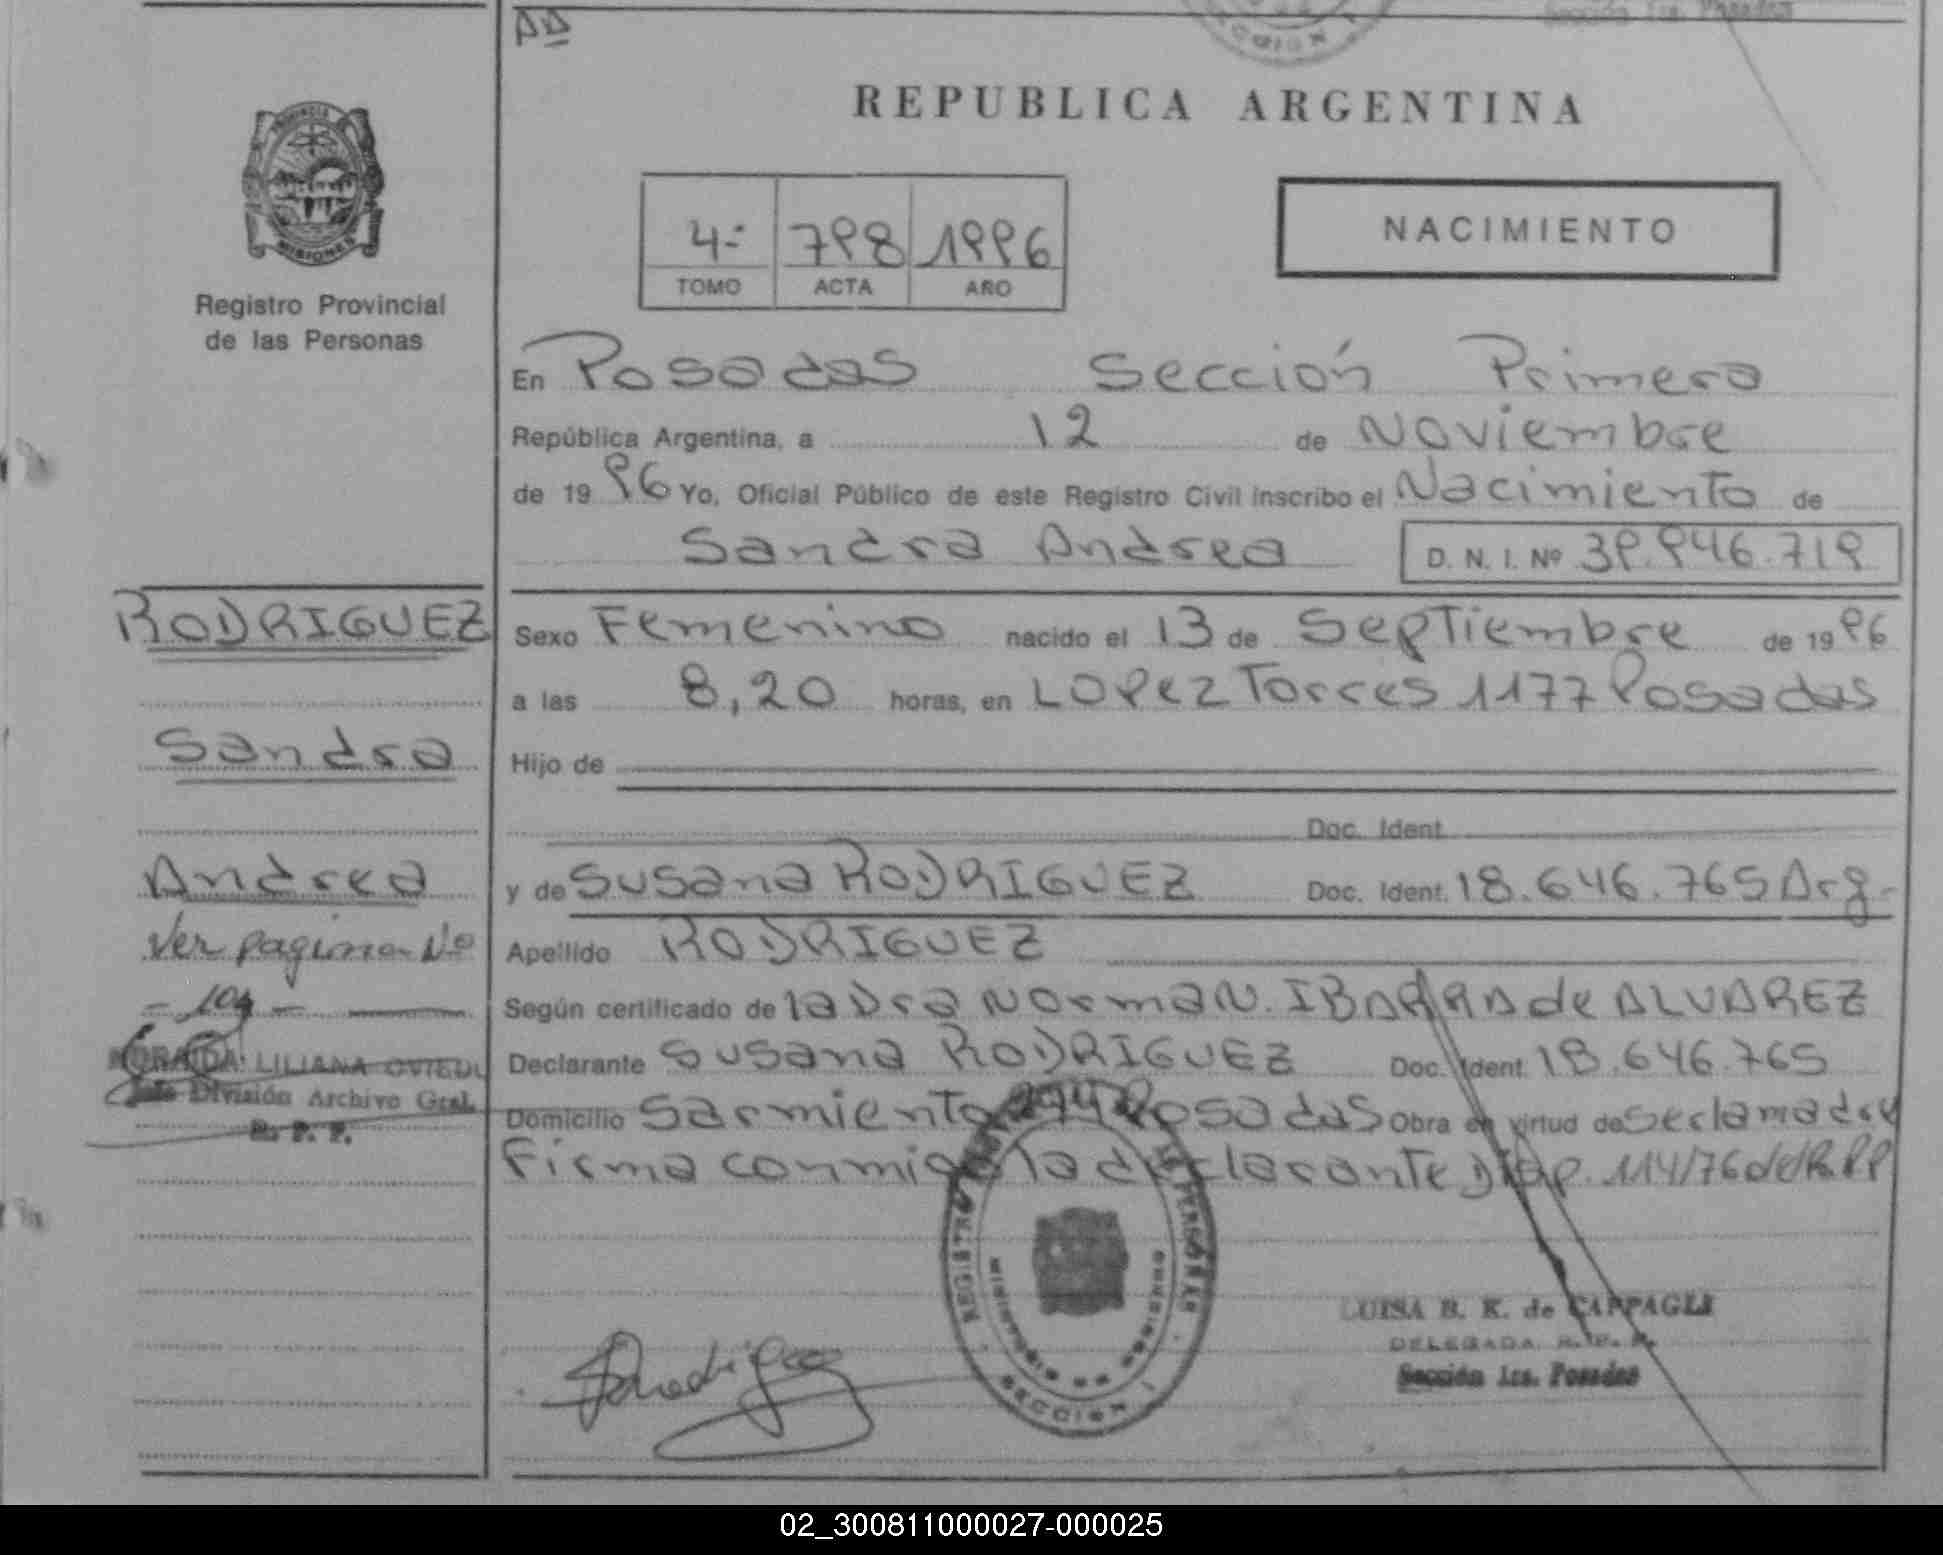 AA
CCION 1
Sección 1ra. Posadas
REPUBLICA ARGENTINA
PROVINCIA
MISIONES
Registro Provincial
de las Personas
4-
798
1996
TOMO
ACTA
AÑO
NACIMIENTO
En Posadas Sección Primera
República Argentina, a 12 de Noviembre
de 19 96 Yo, Oficial Público de este Registro Civil inscribo el Nacimiento de
Sandra Andrea D. N. I. Nº 39.946.719
RODRIGUEZ
Sandra
Andrea
Ver pagina Nº
- 104 -
LILIANA OVIEDO
Jefe División Archivo Gral.
R. P. P.
Sexo Femenino nacido el 13 de Septiembre de 19 96
a las 8,20 horas, en LOPez Torres 1177 Posadas
Hijo de
Doc. Ident.
y de Susana RODRIGUEZ Doc. Ident. 18.646.765 Arg.
Apellido RODRIGUEZ
Según certificado de la Dra Norma N. IBARRA de ALVAREZ
Declarante Susana RODRIGUEZ Doc. Ident. 18.646.765
Domicilio Sarmiento Posadas Obra en virtud de ser la madre
Firma conmigo la declarante Disp. 114/76 del R.P.P
REGISTRO PERSONAS
MISIONES
SECCION 1
Rodriguez
LUISA B. K. de CAPPAGLI
DELEGADA R. P. P.
Sección 1ra. Posadas
02_300811000027-000025